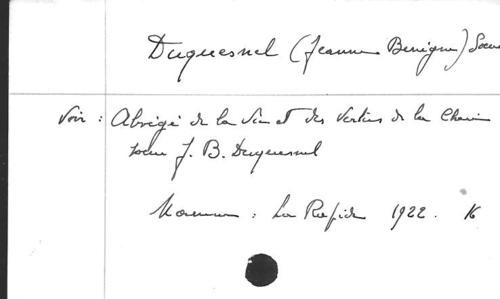 Duquesnel (Jeanne Bénigne) Soeur
Voir : Abrégé de la Vie et des Vertus de la
soeur J. B. Duquesnel
: La Rapide 1922. 16